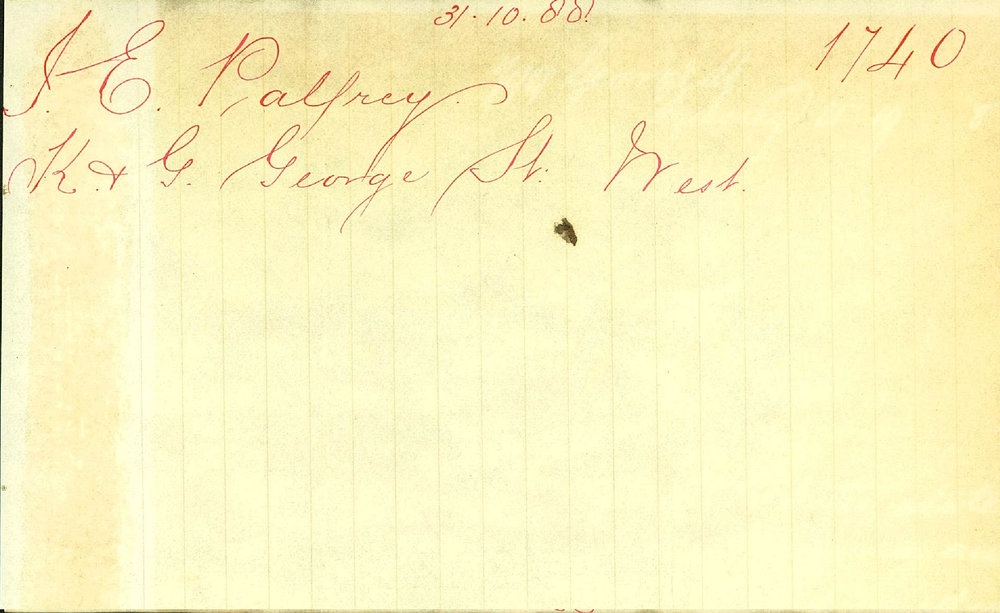 31.10.88.
1740
J. E. Palfrey.
K. & G. George St. West.